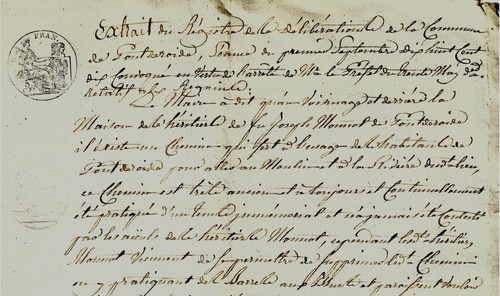 FRAN.
Extrait du Régistre de la délibération de la Commune
de Pontderoide Séance du premier Septembre dix huit cent
dix en vertu de l'arrêté de Mr le Préfet du trente May
Relatif
Le Maire a dit qu'au voisinage et derrière la
Maison de l'héritier de feu Joseph Monnot de Pontderoide
il éxiste un Chemin qui sert à l'usage de l'habitant de
Pontderoide pour aller au Moulin et à la Rivière dudt lieu,
ce Chemin est très ancien et a toujours et Continuellement
été pratiqué d'un tems immémorial et n'a jamais été Contesté
par les aieuls de l'héritier Monnot, cependant lesdt héritiers
Monnot viennent de se permettre de supprimer ledt Chemin
en y pratiquant de Barrelle aux et paroissent vouloir